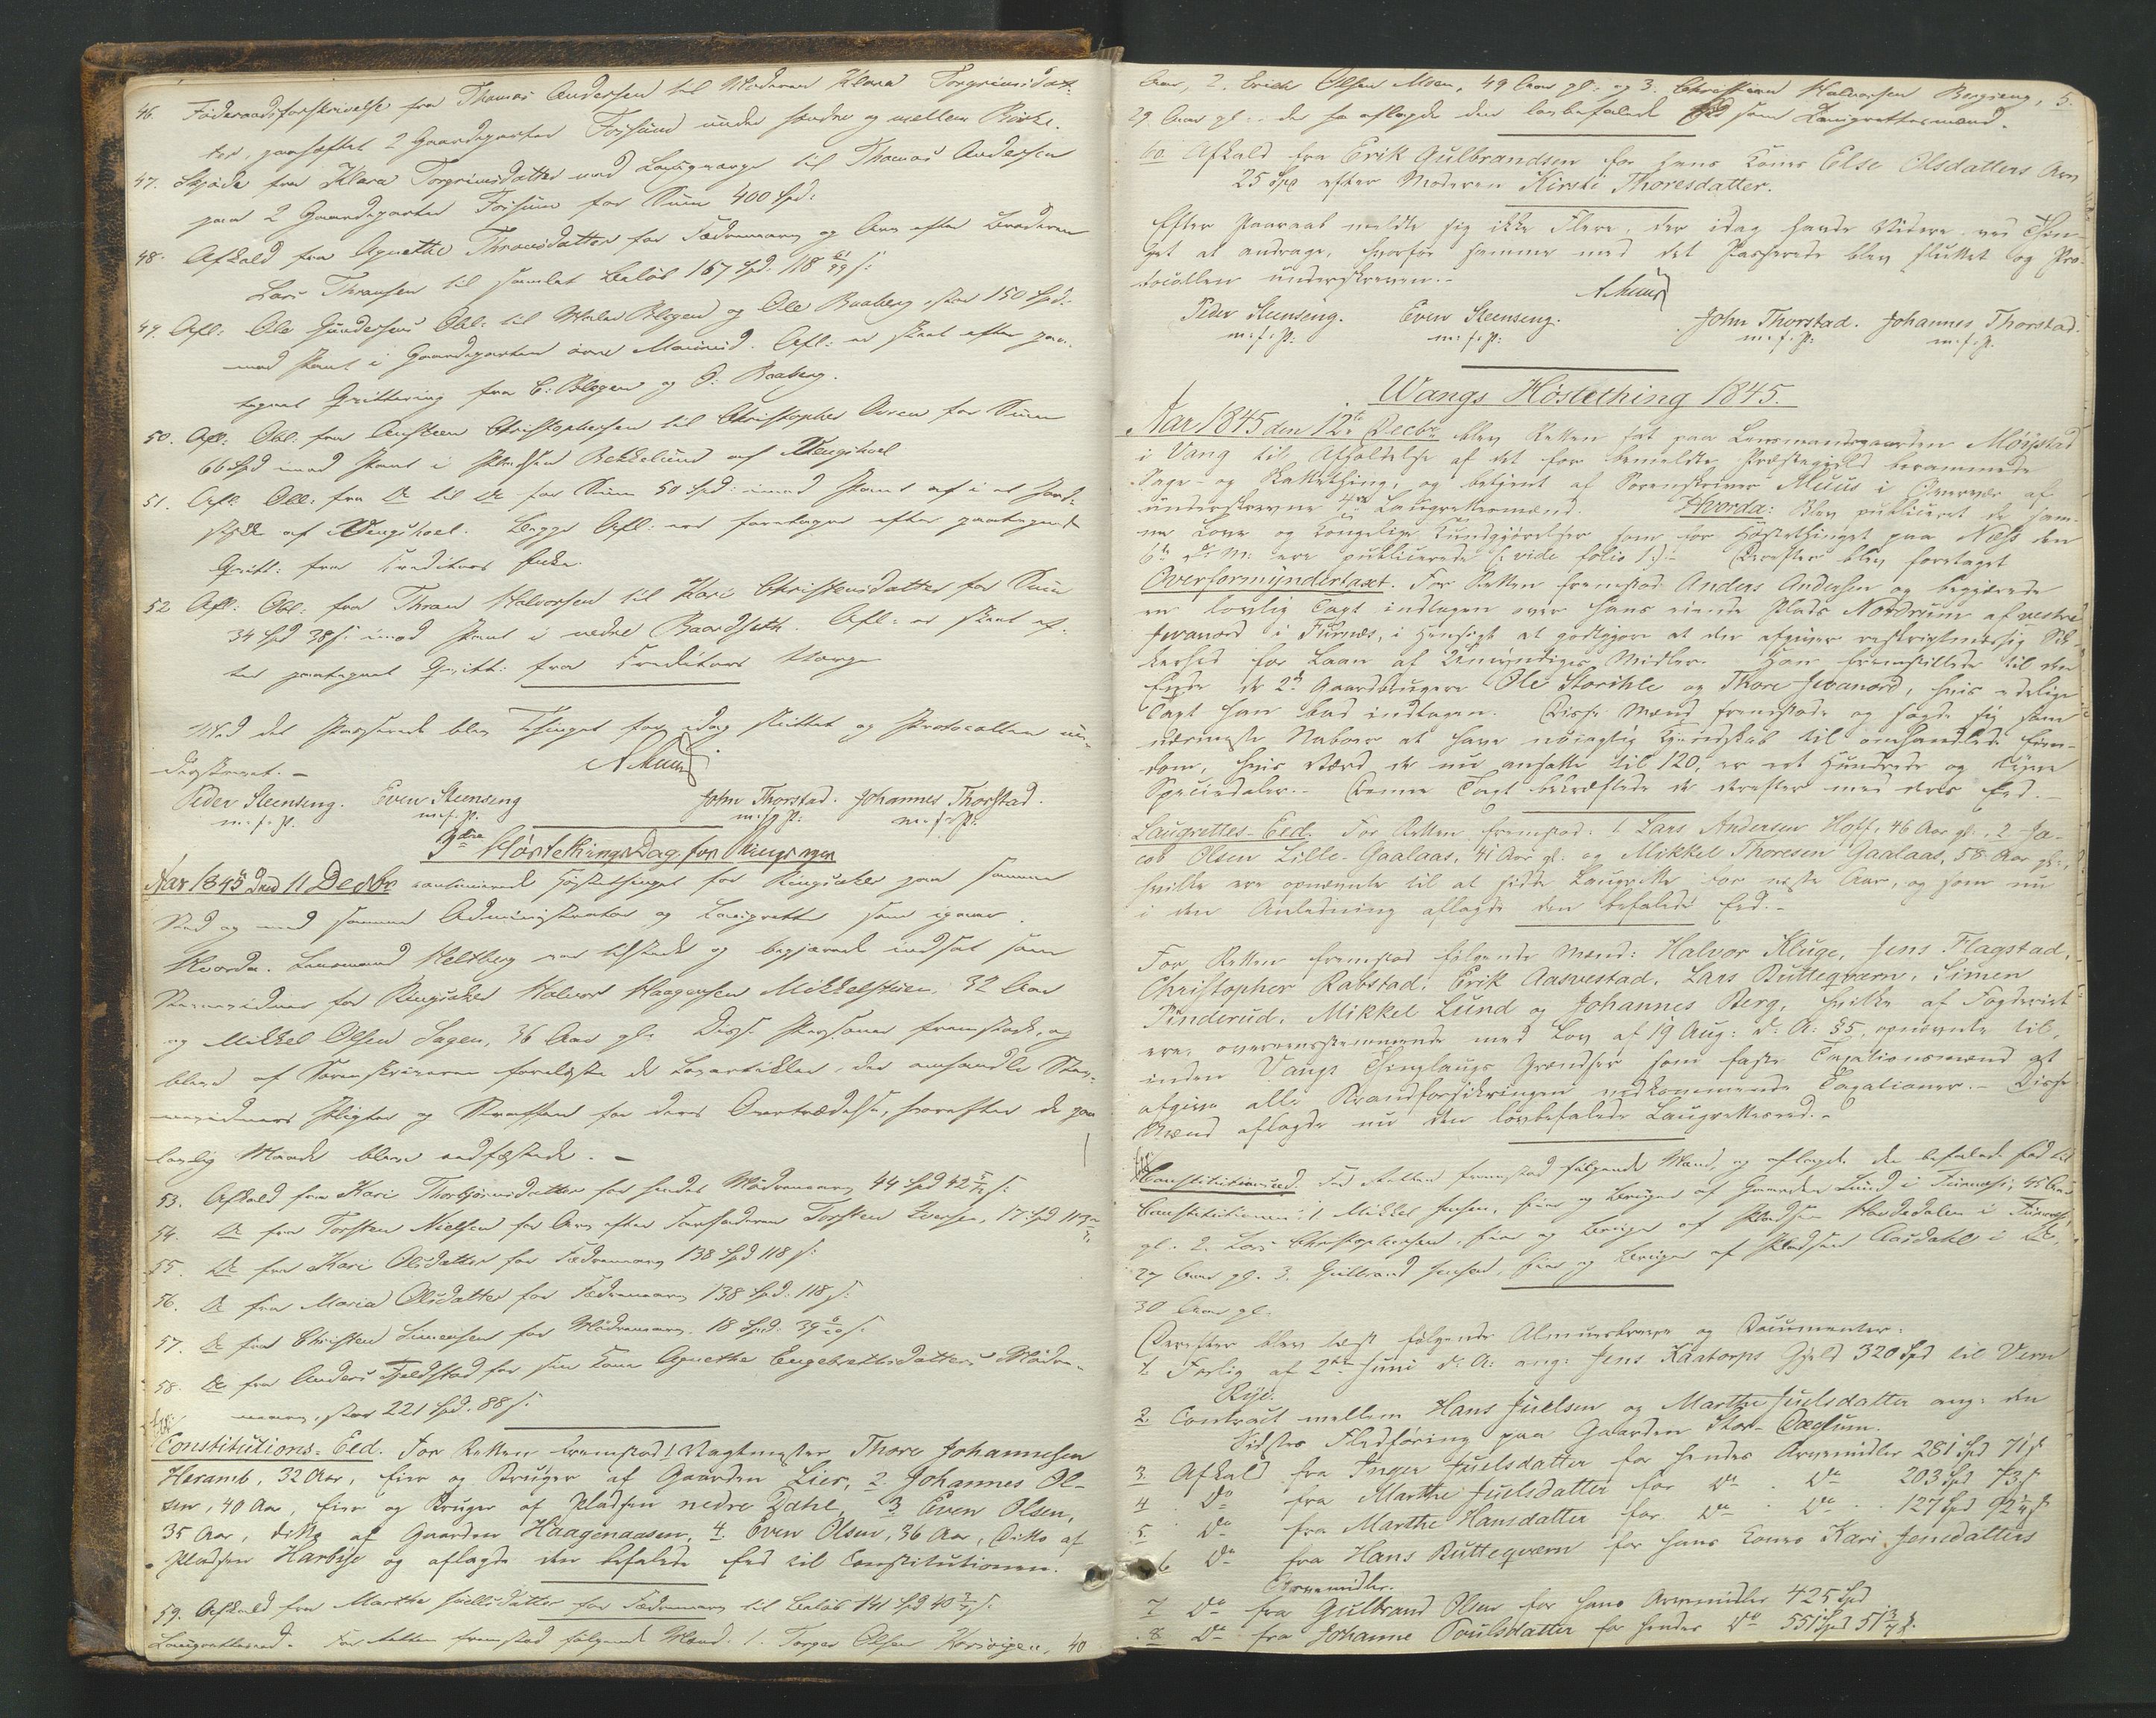 46. Föderaadsforskrivelse fra Thomas Andersen til Moderen Klara Torgrimsdat-
ter, paaheftet 2 Gaardeparter Frisund under søndre og mellem Ricke.
47. Skjøde fra Klara Torgrimsdatter med Laugværge til Thomas Andersen
paa 2 Gaardeparter for Sum 400 Spd:
48. Afkald fra Agnethe Thronsdatter for Fædrenearv og Arv efter Broderen
Lars Thronsen til samlet Beløb 167 Spd. 118 s:
49. Afl: Ole Gundersens Obl: til og Ole Baaberg stor 150 Spd:
mod Pant i Gaardeparten øvre Afl: er skeet efter paa-
tegnet Qvittering fra og O: Baaberg.
50. Afl: Obl: fra Austeen Christophersen til Christopher for Sum
66 Spd imod Pant i Pladsen Bekkelund af
51. Afl: Obl: fra Do til Do for Sum 50 Spd: imod Pant af i et Jord-
stykke af Begge Afl: ere foretagne efter paategnede
Qvitt: fra Creditors Enke.
52 Afl: Obl: fra Thron Halvorsen til Kari Christensdatter for Sum
34 Spd 38 s: imod Pant i nedre Baardseth. Afl: er skeet ef-
ter paategnet Qvitt: fra Creditors Værge
Med det Passerede blev Thinget for idag sluttet og Protocollen un-
derskrevet. –
AMuus
Peder Steenseng. Even Steenseng John Thorstad. Johannes Thorstad.
m. f. P. m. f. P. m. f. P. m. f. P.
3die Høstethingsdag for Ringsager
Aar 1845 den 11 Decbr continuerede Høstethinget for Ringsaker paa samme
Sted og med samme Administrator og Laugrette som igaar.
Hvorda. Lensmand Heltberg var tilstede og begjærede indsat som
Stevnevidner for Ringsaker Halvor Haagensen Mikkelstuen, 32 Aar
og Mikkel Olsen Sagen, 36 Aar gl. Disse Personer fremstode, og
bleve af Sorenskriveren forelæste de Lovartikler, der omhandle Stev-
nevidners Pligter og Straffen for deres Overtrædelse, hvorefter de paa
lovlig Maade bleve eedfæstede. –
53. Afkald fra Kari Thorbjørnsdatter for hendes Mödrenearv 44 Spd 42 s:
54. Do fra Torsten Nielsen for Arv efter Farfaderen Torsten Iversen, 17 Spd 113
55. Do fra Kari Olsdatter for Fædrenearv 138 Spd 118 s:
56. Do fra Maria Olsdatter for Fædrenearv 138 Spd: 118 s:
57. Do fra Christen Simensen for Mödrenearv. 18 Spd: 39 s:
58. Do fra Anders Fjeldstad for sin Kone Agnethe Engebrethsdatters Mödre-
nearv, stor 221 Spd. 88 s.
Constitutions-Eed. For Retten fremstod 1 Vagtmester Thore Johannesen
Heramb, 32 Aar, Eier og Bruger af Gaarden Lier, 2 Johannes Ol-
sen, 40 Aar, Eier og Bruger af Pladsen nedre Dahl, 3 Even Olsen,
35 Aar, ditto af Gaarden Haagenaasen, 4. Even Olsen, 36 Aar, Ditto af
Pladsen Harbye og aflagde den befalede Eed til Constitutionen.
59. Afkald fra Marthe Juelsdatter for Fædrenearv til Beløb 141 Spd 40 s.
Laugrettesed. For Retten fremstod følgende Mænd. 1. Torger Olsen 40
Aar, 2. Erick Olsen Moen, 49 Aar gl: og 3. Christian Halvorsen Bergseng, 5.
29 Aar gl: der har aflagde den lovbefalede Eed som Laugrettesmænd.
60. Afkald fra Erik Gulbrandsen for hans Kones Else Olsdatters Arv
25 Spd efter Moderen Kirsti Thoresdatter.
Efter Paaraab meldte sig ikke Flere, der idag havde Videre ved Thin-
get at andrage, hvorfor samme med det Passerede blev sluttet og Pro-
tocollen underskreven. –
AMuus
Peder Steenseng. Even Steenseng. John Thorstad. Johannes Thorstad.
m. f. P: m: f. P: m. f. P: m. f. P.
Wangs Høstething 1845.
Aar 1845 den 12te Decbr. blev Retten sat paa Lensmandsgaarden Möystad
i Vang til Afholdelse af det for bemeldte Præstegjeld berammede
Sage- og Skattething, og betjent af Sorenskriver Muus i Overvær af
underskrevne 4re Laugrettesmænd. Hvorda: Blev publiceret de sam-
me Love og kongelige Kundgjörelser som for Høstethinget paa Næs den
6te d: M: ere publicerede (: vide folio 1:) – Derefter blev foretaget
Overformyndertaxt. For Retten fremstod Anders Andersen og begjærede
en lovlig Taxt indtagen over hans eiende Plads Nordrum af vestre
Jevanord i Furnæs, i Hensigt at godtgjøre at den afgiver reskriptmæssig Sik-
kerhed for Laan af Umyndiges Midler. Han fremstillede til den
Ende de 2de Gaardbrugere Ole Storihle og Thore Jevanord, hvis edelige
Taxt han bad indtagen. Disse Mænd fremstode og sagde sig som
nærmeste Naboer at have nöiagtig Kjendskab til omhandlede Eien-
dom, hvis Værd de nu ansatte til 120, er eet Hundrede og tyve
Speciedaler. – Denne Taxt bekræftede de derefter med deres Eed. –
Laugrettes-Eed. For Retten fremstod: 1. Lars Andersen Hoff, 46 Aar gl. 2. Ja-
cob Olsen Lille-Gaalaas, 41 Aar gl: og Mikkel Thoresen Gaalaas, 58 Aar gl:,
hvilke ere opnævnte til at sidde Laugrette for neste Aar, og som nu
i den Anledning aflagde den befalede Eed. –
For Retten fremstod følgende Mænd: Halvor Kluge, Jens Flagstad,
Christopher Rabstad, Erik Aasvestad, Lars Butteqværn, Simen
Pinderud, Mikkel Lund og Johannes Berg, hvilke af Fogderiet
ere, overeensstemmende med Lov af 19 Aug: d: A: §5, opnævnte til,
inden Vangs Thinglaugs Grændser som faste Taxationsmænd at
afgive alle Brandforsikringen vedkommende Taxationer. – Disse
Mænd aflagde nu den lovbefalede Laugrettesed. –
Constitutionsed. For Retten fremstod følgende Mænd, og aflagde den befalede Eed til
Constitutionen: 1 Mikkel Jensen, Eier og Bruger af Gaarden Lund i Furnæs, 45 Aar
gl. 2. Lars Christophersen, Eier og Bruger af Pladsen Hardedalen i Furnæs,
27 Aar gl. 3. Gulbrand Jensen, Eier og Bruger af Pladsen Aasdahl i Do,
30 Aar gl.
Derefter blev læst følgende Almuesbreve og Documenter:
1. Forlig af 2den Juni d: A: ang: Jens Kaatorps Gjeld 320 Spd til Vern
Rye.
2. Contract mellem Hans Juelsen og Marthe Juelsdatter ang: den
Sidstes Fledføring paa Gaarden Stor-Dæglum.
3. Afkald fra Inger Juelsdatter for hendes Arvemidler 281 Spd 71 s
4 Do fra Marthe Juelsdatter for Do Do 203 Spd 73 s
5. Do fra Marthe Hansdatter for Do Do 127 Spd 92 s
6 Do fra Hans Butteqværn for hans Kones Kari Jensdatters
Arvemidler.
7 Do fra Gulbrand Olsen for hans Arvemidler 425 Spd
8 Do fra Johanne Poulsdatter for hendes Do 551 Spd 51 s.